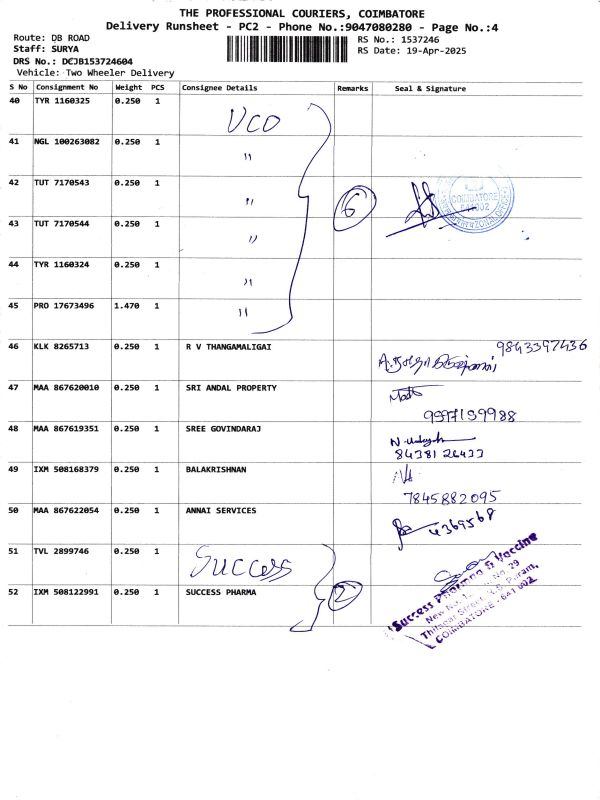 THE PROFESSIONAL COURIERS, COIMBATORE
Delivery Runsheet - PC2 - Phone No.:9047080280 - Page No.:4
Route: DB ROAD
Staff: SURYA
DRS No.: DCJB153724604
Vehicle: Two Wheeler Delivery
RS No.: 1537246
RS Date: 19-Apr-2025
S No Consignment No Weight PCS Consignee Details Remarks Seal & Signature
40 TYR 1160325 0.250 1 VCO
41 NGL 100263082 0.250 1 "
42 TUT 7170543 0.250 1 " 6
COIMBATORE
641 002
43 TUT 7170544 0.250 1 "
44 TYR 1160324 0.250 1 "
45 PRO 17673496 1.470 1 "
46 KLK 8265713 0.250 1 R V THANGAMALIGAI 9843397436
47 MAA 867620010 0.250 1 SRI ANDAL PROPERTY
9597159988
48 MAA 867619351 0.250 1 SREE GOVINDARAJ
8438126433
49 IXM 508168379 0.250 1 BALAKRISHNAN
7845882095
50 MAA 867622054 0.250 1 ANNAI SERVICES 4369568
51 TVL 2899746 0.250 1 Success
52 IXM 508122991 0.250 1 SUCCESS PHARMA 2
Success Pharma & Vaccine
New No. No. 29
Thilagar Street, R.S. Puram,
COIMBATORE - 641 002